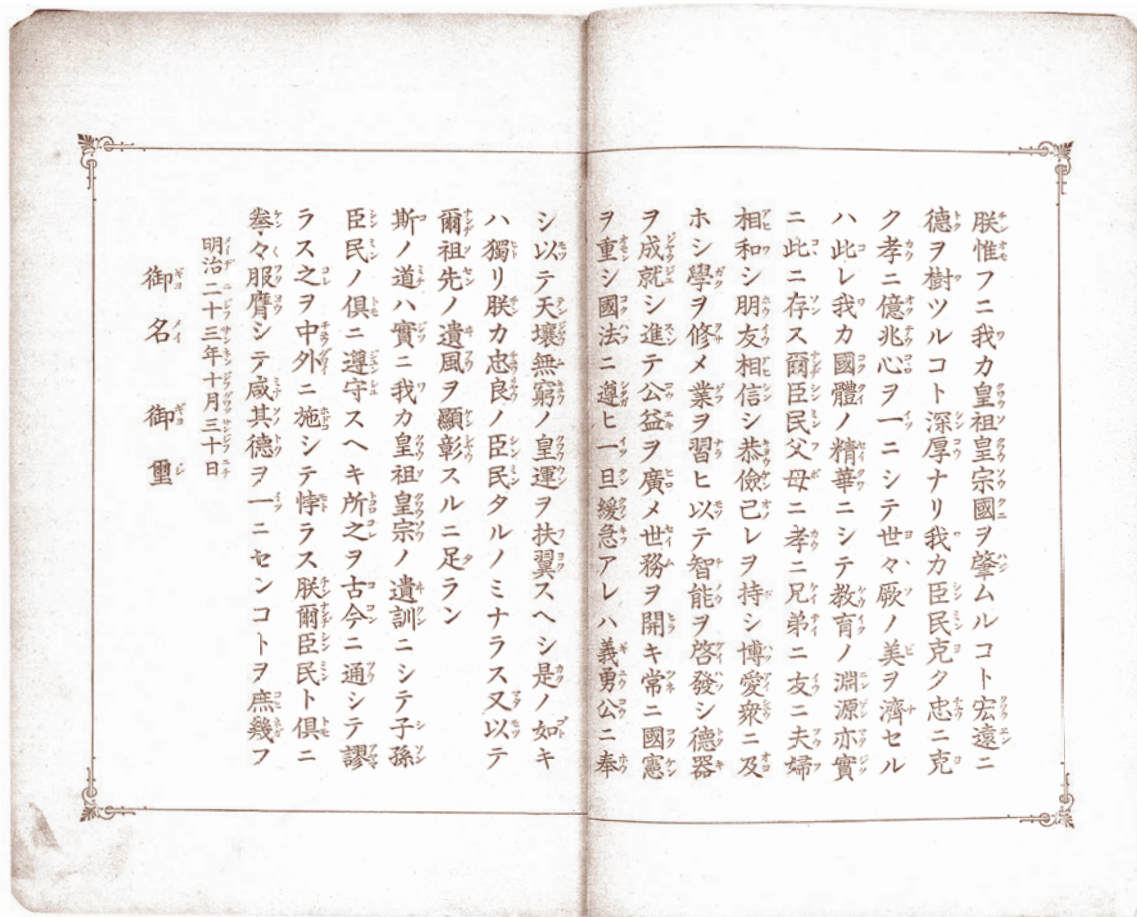 朕惟フニ我カ皇祖皇宗國ヲ肇ムルコト宏遠ニ
德ヲ樹ツルコト深厚ナリ我カ臣民克ク忠ニ克
ク孝ニ億兆心ヲ一ニシテ世々厥ノ美ヲ濟セル
ハ此レ我カ國體ノ精華ニシテ教育ノ淵源亦實
ニ此ニ存ス爾臣民父母ニ孝ニ兄弟ニ友ニ夫婦
相和シ朋友相信シ恭儉己レヲ持シ博愛衆ニ及
ホシ學ヲ修メ業ヲ習ヒ以テ智能ヲ啓發シ德器
ヲ成就シ進テ公益ヲ廣メ世務ヲ開キ常ニ國憲
ヲ重シ國法ニ遵ヒ一旦緩急アレハ義勇公ニ奉
シ以テ天壤無窮ノ皇運ヲ扶翼スヘシ是ノ如キ
ハ獨リ朕カ忠良ノ臣民タルノミナラス又以テ
爾祖先ノ遺風ヲ顯彰スルニ足ラン
斯ノ道ハ實ニ我カ皇祖皇宗ノ遺訓ニシテ子孫
臣民ノ倶ニ遵守スヘキ所之ヲ古今ニ通シテ謬
ラス之ヲ中外ニ施シテ悖ラス朕爾臣民ト倶ニ
拳々服膺シテ咸其德ヲ一ニセンコトヲ庶幾フ
明治二十三年十月三十日
御名御璽